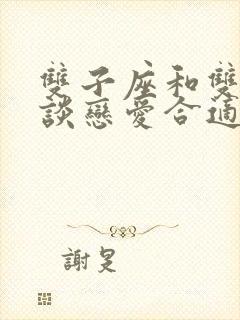 雙子座和雙
談戀愛合適
謝旻